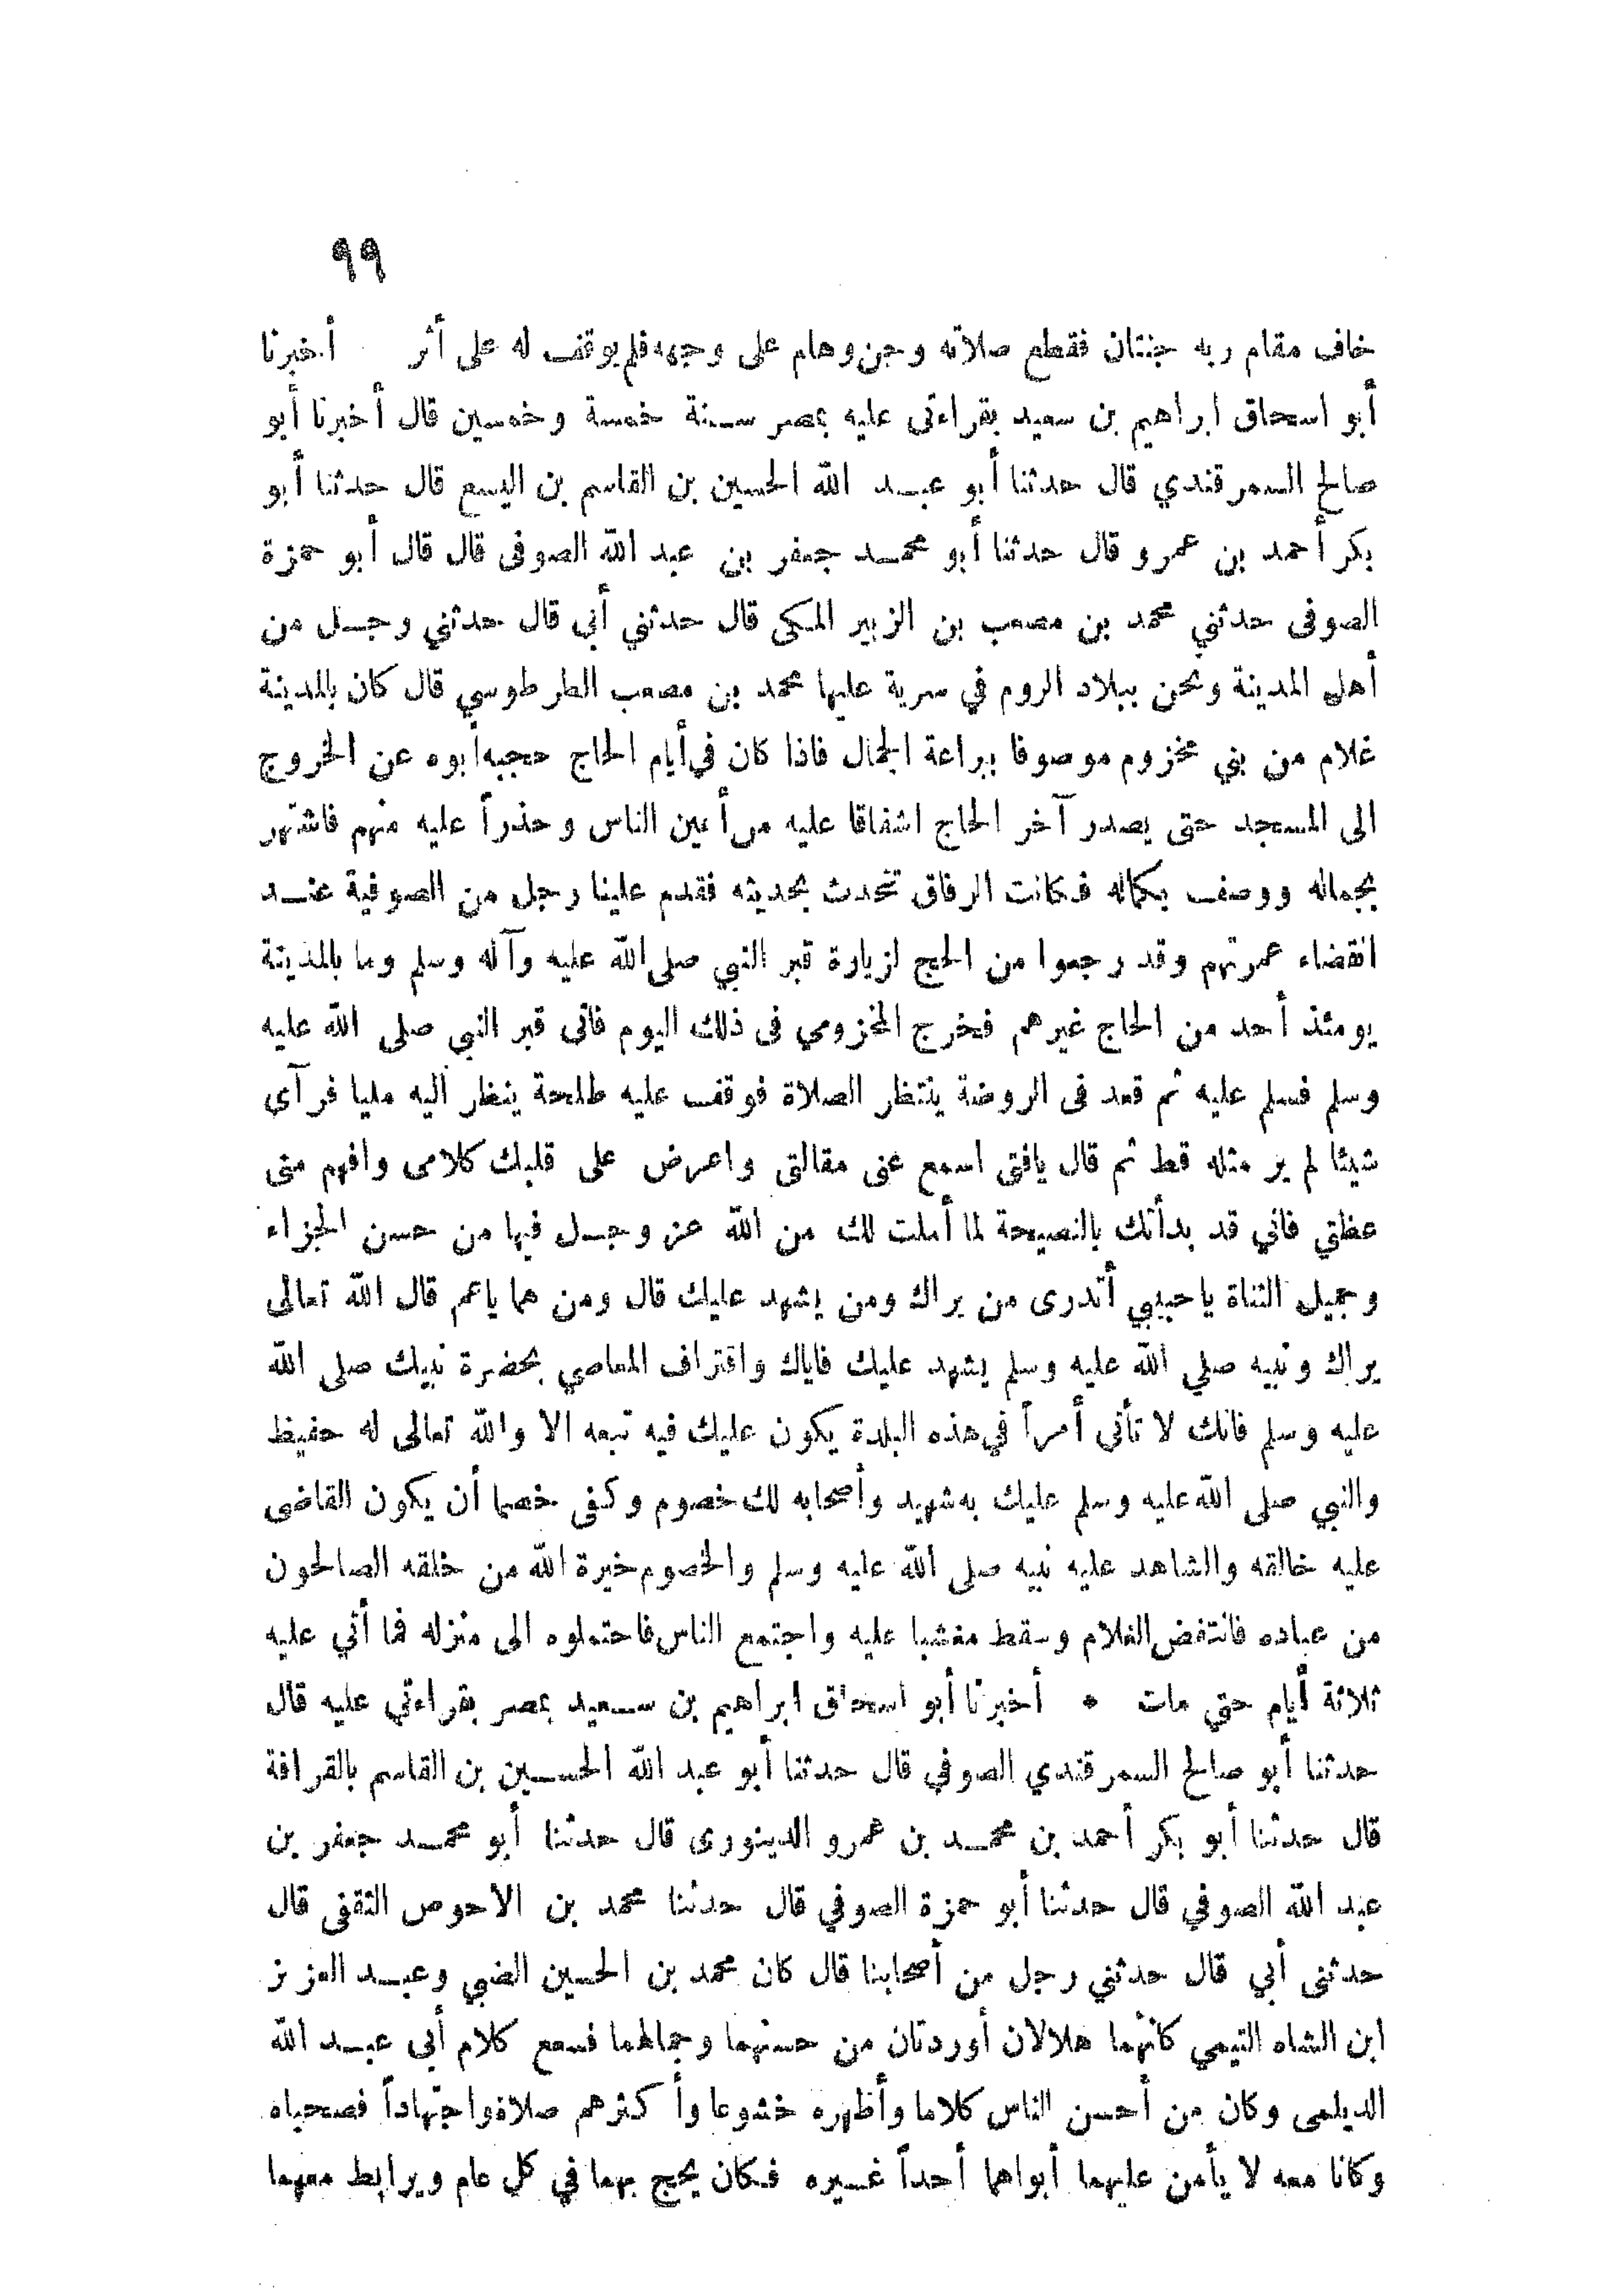 ٩٩
خاف مقام ربه جنتان فقطع صلاته وجن وهام على وجهه فلم يوقف له على أثر أخبرنا
أبو اسحاق ابراهيم بن سعيد بقراءتى عليه بمصر سنة خمسة وخمسين قال أخبرنا أبو
صالح السمرقندي قال حدثنا أبو عبد الله الحسين بن القاسم بن اليسع قال حدثنا أبو
بكر أحمد بن عمرو قال حدثنا أبو محمد جعفر بن عبد الله الصوفى قال قال أبو حمزة
الصوفى حدثني محمد بن مصعب بن الزبير المكى قال حدثني أبي قال حدثني رجل من
أهل المدينة ونحن ببلاد الروم في سرية عليها محمد بن مصعب الطرطوسي قال كان بالمدينة
غلام من بني مخزوم موصوفا ببراعة الجمال فاذا كان في أيام الحاج حجبه أبوه عن الخروج
الى المسجد حتى يصدر آخر الحاج اشفاقا عليه من أعين الناس وحذراً عليه منهم فاشتهر
بجماله ووصف بكماله فكانت الرفاق تتحدث بحديثه فقدم علينا رجل من الصوفية عند
انقضاء عمرتهم وقد رجعوا من الحج لزيارة قبر النبي صلى الله عليه وآله وسلم وما بالمدينة
يومئذ أحد من الحاج غيرهم فخرج المخزومي فى ذلك اليوم فاتى قبر النبي صلى الله عليه
وسلم فسلم عليه ثم قعد فى الروضة ينتظر الصلاة فوقف عليه طلحة ينظر اليه مليا فرآى
شيئا لم ير مثله قط ثم قال يافتى اسمع عنى مقالتى واعرض على قلبك كلامى وافهم منى
عظتي فاني قد بدأتك بالنصيحة لما أملت لك من الله عز وجل فيها من حسن الجزاء
وجميل الثناة ياحبيبي أتدرى من يراك ومن يشهد عليك قال ومن هما ياعم قال الله تعالى
يراك ونبيه صلي الله عليه وسلم يشهد عليك فاياك واقتراف المعاصي بحضرة نبيك صلى الله
عليه وسلم فانك لا تأتى أمراً في هذه البلدة يكون عليك فيه تبعه الا والله تعالى له حفيظ
والنبي صلى الله عليه وسلم عليك به شهيد وأصحابه لك خصوم وكفى خصما أن يكون القاضى
عليه خالقه والشاهد عليه نبيه صلى الله عليه وسلم والخصوم خيرة الله من خلقه الصالحون
من عباده فانتفض الغلام وسقط مغشيا عليه واجتمع الناس فاحتملوه الى منزله فما أتي عليه
ثلاثة أيام حتي مات * أخبرنا أبو اسحاق ابراهيم بن سعيد بمصر بقراءتي عليه قال
حدثنا أبو صالح السمرقندي الصوفي قال حدثنا أبو عبد الله الحسين بن القاسم بالقرافة
قال حدثنا أبو بكر أحمد بن محمد بن عمرو الدينورى قال حدثنا أبو محمد جعفر بن
عبد الله الصوفي قال حدثنا أبو حمزة الصوفي قال حدثنا محمد بن الاحوص الثقفى قال
حدثنى أبي قال حدثني رجل من أصحابنا قال كان محمد بن الحسين الضبي وعبد العزيز
ابن الشاه التيمي كانهما هلالان أوردتان من حسنهما وجمالهما فسمع كلام أبى عبد الله
الديلمى وكان من أحسن الناس كلاما وأظهره خشوعا وأكثرهم صلاة واجتهاداً فصحباه
وكانا معه لا يأمن عليهما أبواهما أحداً غيره فكان يحج بهما في كل عام ويرابط معهما